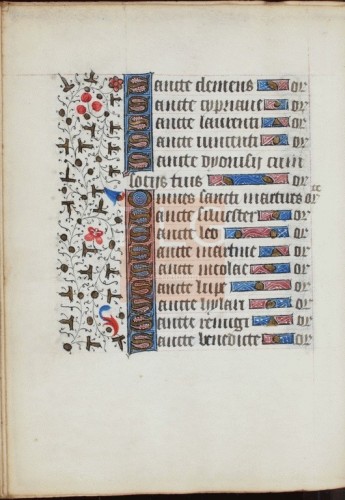 Sancte clemens or
Sancte cypriane or
Sancte laurenti or
Sancte vincenti or
Sancte dyonisij cum
socijs tuis or
Omnes sancti martires orate
Sancte silvester or
Sancte leo or
Sancte martine or
Sancte nicolae or
Sancte or
Sancte hylari or
Sancte remigi or
Sancte benedicte or